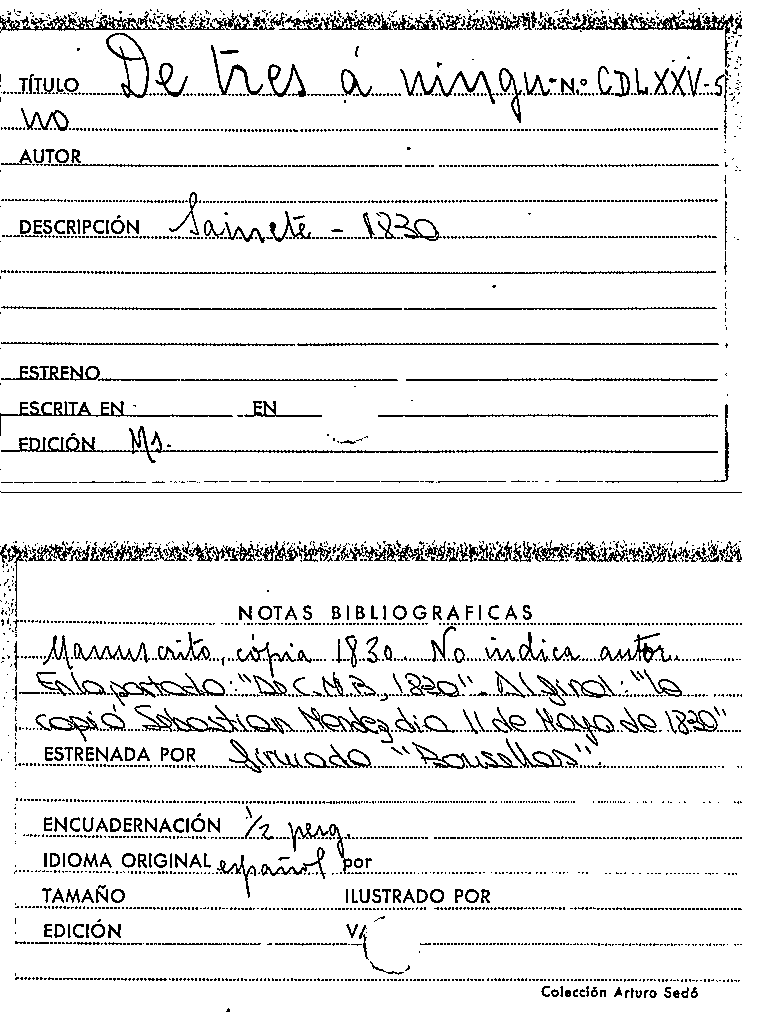 TÍTULO De tres á ningu- N.º CDLXXV-5
no
AUTOR
DESCRIPCIÓN Sainete - 1830
ESTRENO
ESCRITA EN EN
EDICIÓN Ms.
NOTAS BIBLIOGRAFICAS
Manuscrito, cópia 1830. No indica autor.
En la portada: "De C. M. B, 1830". Al final: "Lo
copió Sebastian Mendez dia 11 de Mayo de 1830"
ESTRENADA POR firmado "Bousellas".
ENCUADERNACIÓN 1/2 perg.
IDIOMA ORIGINAL español por
TAMAÑO ILUSTRADO POR
EDICIÓN
Colección Arturo Sedó